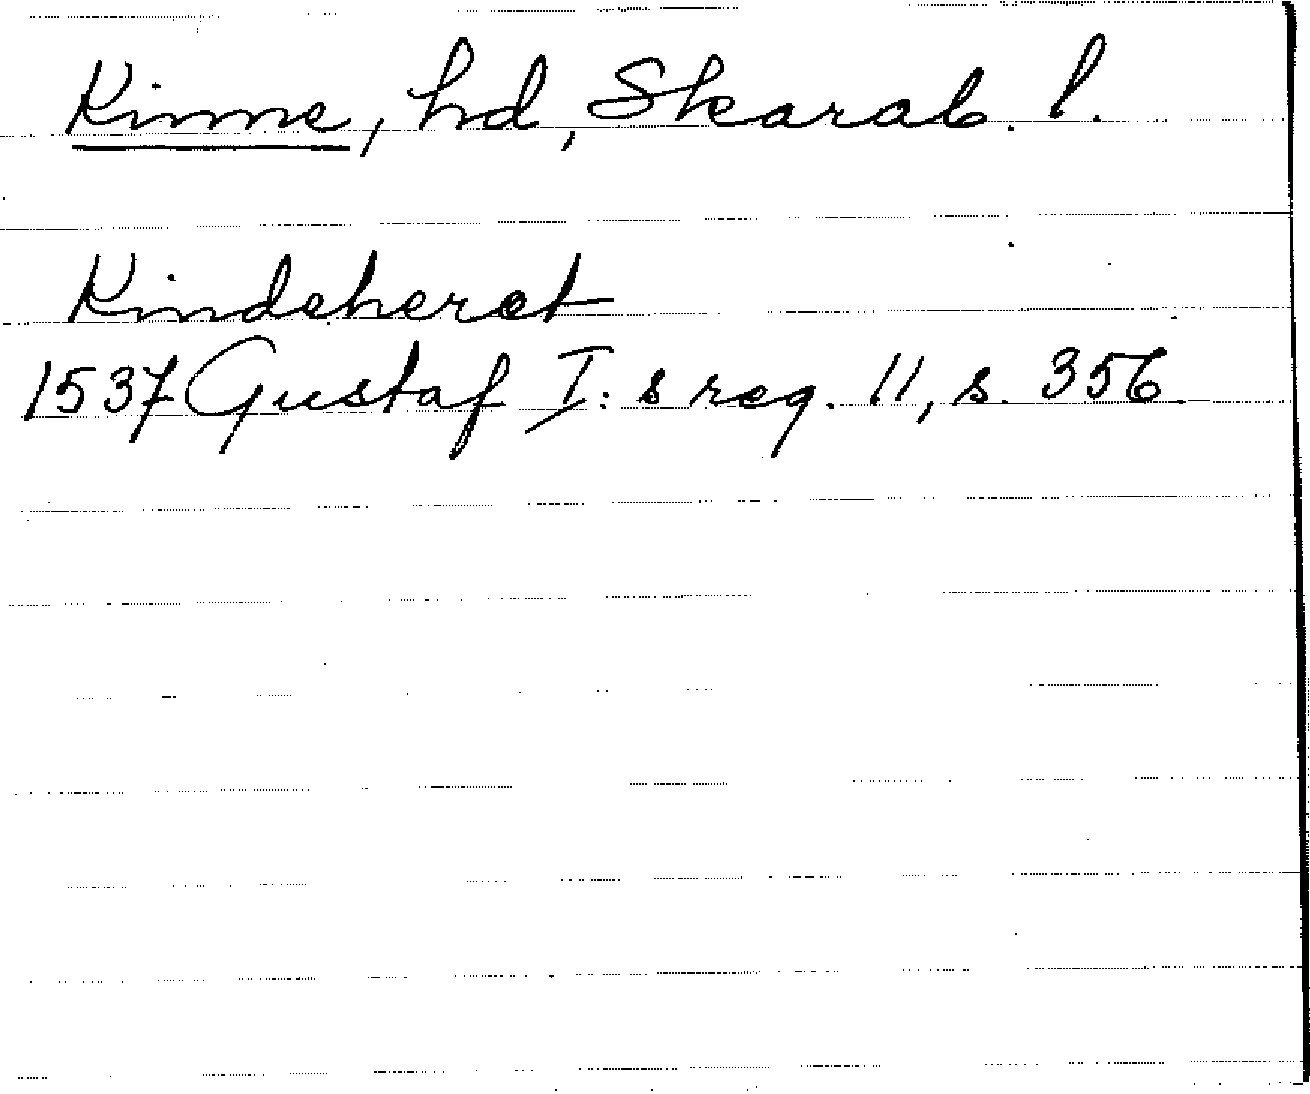 Kinne, hd, Skarab. l.
Kindeheret
1537 Gustaf I:s reg. 11, s. 356.